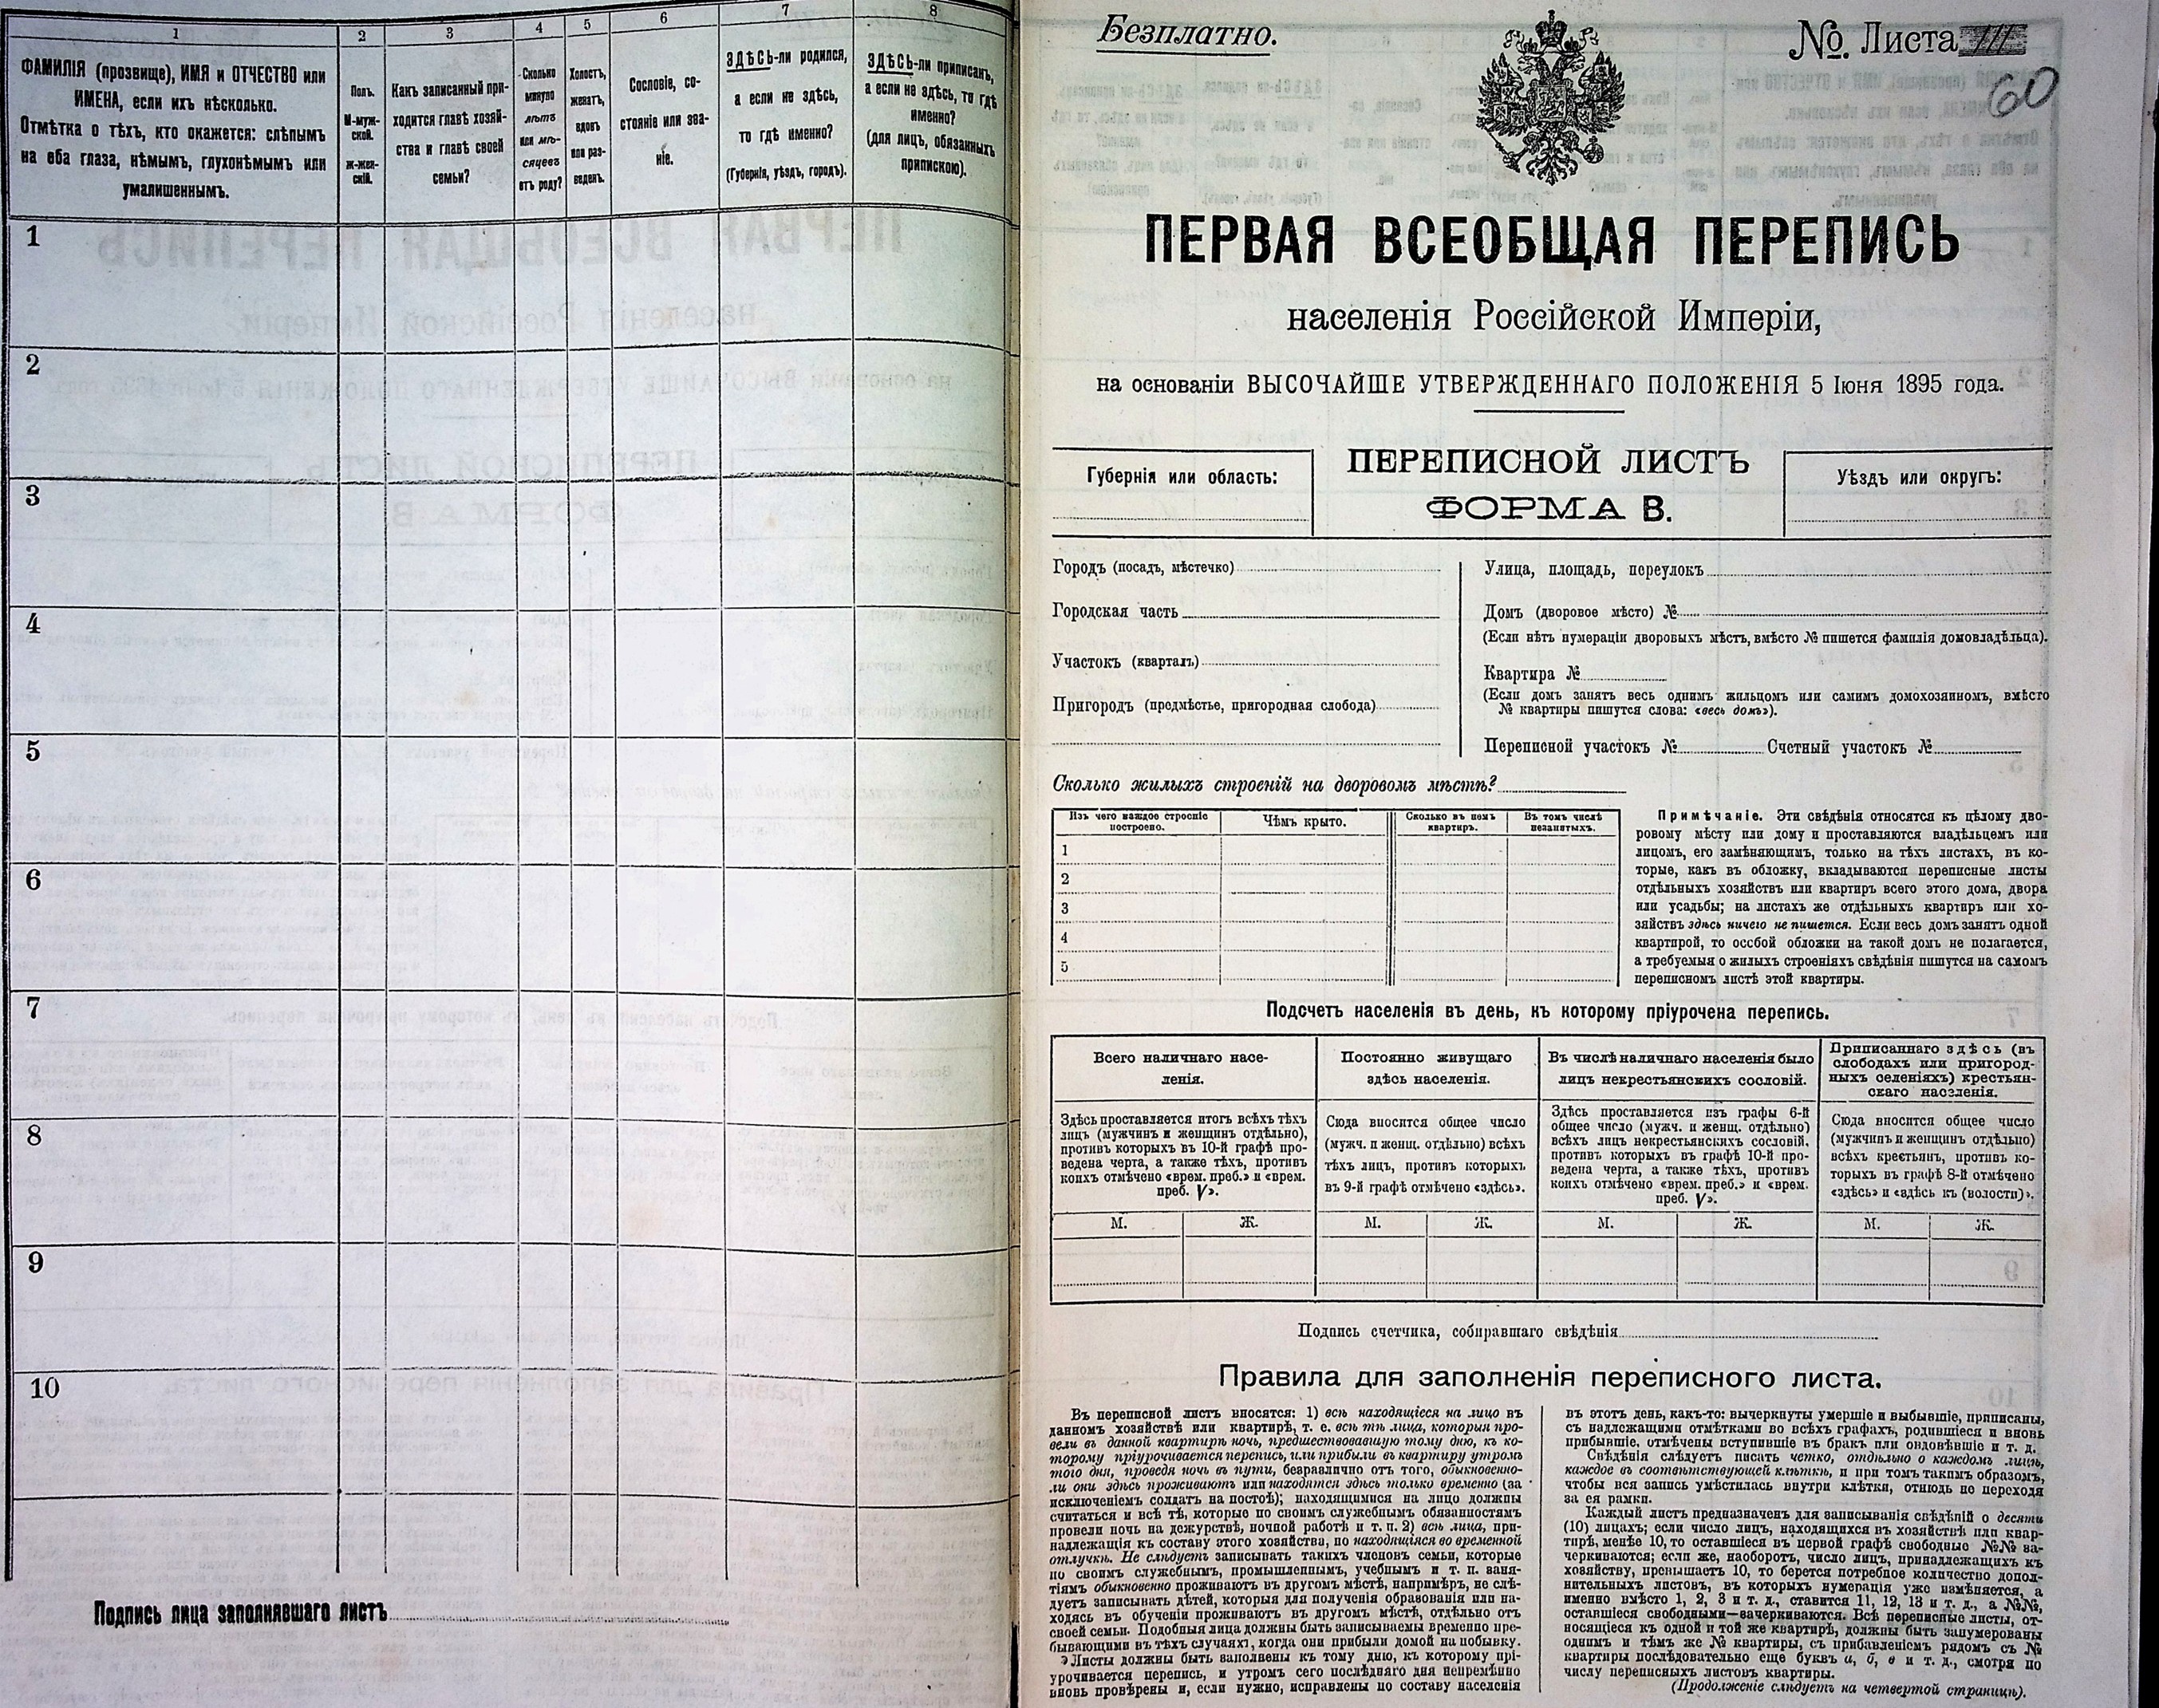 1
ФАМИЛІЯ (прозвище), ИМЯ и ОТЧЕСТВО или
ИМЕНА, если ихъ нѣсколько.
Отмѣтка о тѣхъ, кто окажется: слѣпымъ
на оба глаза, нѣмымъ, глухонѣмымъ или
умалишеннымъ.
2
Полъ.
М-муж-
ской.
Ж-жен-
скій.
3
Какъ записанный при-
ходится главѣ хозяй-
ства и главѣ своей
семьи?
4
Сколько
минуло
лѣтъ
или мѣ-
сяцевъ
отъ роду?
5
Холостъ,
женатъ,
вдовъ
или раз-
веденъ.
6
Сословіе, со-
стояніе или зва-
ніе.
7
ЗДѢСЬ-ли родился,
а если не здѣсь,
то гдѣ именно?
(Губернія, уѣздъ, городъ).
8
ЗДѢСЬ-ли приписанъ,
а если не здѣсь, то гдѣ
именно?
(для лицъ, обязанныхъ
припискою).
1
2
3
4
5
6
7
8
9
10
Подпись лица заполнявшаго листъ
Безплатно.
№. Листа
60
ПЕРВАЯ ВСЕОБЩАЯ ПЕРЕПИСЬ
населенія Россійской Имперіи,
на основаніи ВЫСОЧАЙШЕ УТВЕРЖДЕННАГО ПОЛОЖЕНІЯ 5 Іюня 1895 года.
Губернія или область:
ПЕРЕПИСНОЙ ЛИСТЪ
ФОРМА В.
Уѣздъ или округъ:
Городъ (посадъ, мѣстечко)
Городская часть
Участокъ (кварталъ)
Пригородъ (предмѣстье, пригородная слобода)
Улица, площадь, переулокъ
Домъ (дворовое мѣсто) №
(Если нѣтъ нумераціи дворовыхъ мѣстъ, вмѣсто № пишется фамилія домовладѣльца).
Квартира №
(Если домъ занятъ весь однимъ жильцомъ или самимъ домохозяиномъ, вмѣсто
№ квартиры пишутся слова: «весь домъ»).
Переписной участокъ № Счетный участокъ №
Сколько жилыхъ строеній на дворовомъ мѣстѣ?
Изъ чего каждое строеніе
построено.
Чѣмъ крыто.
Сколько въ немъ
квартиръ.
Въ томъ числѣ
незанятыхъ.
1
2
3
4
5
Примѣчаніе. Эти свѣдѣнія относятся къ цѣлому дво-
ровому мѣсту или дому и проставляются владѣльцемъ или
лицомъ, его замѣняющимъ, только на тѣхъ листахъ, въ ко-
торые, какъ въ обложку, вкладываются переписные листы
отдѣльныхъ хозяйствъ или квартиръ всего этого дома, двора
или усадьбы; на листахъ же отдѣльныхъ квартиръ или хо-
зяйствъ здѣсь ничего не пишется. Если весь домъ занятъ одной
квартирой, то особой обложки на такой домъ не полагается,
а требуемыя о жилыхъ строеніяхъ свѣдѣнія пишутся на самомъ
переписномъ листѣ этой квартиры.
Подсчетъ населенія въ день, къ которому пріурочена перепись.
Всего наличнаго насе-
ленія.
Постоянно живущаго
здѣсь населенія.
Въ числѣ наличнаго населенія было
лицъ некрестьянскихъ сословій.
Приписаннаго здѣсь (въ
слободахъ или пригород-
ныхъ селеніяхъ) крестьян-
скаго населенія.
Здѣсь проставляется итогъ всѣхъ тѣхъ
лицъ (мужчинъ и женщинъ отдѣльно),
противъ которыхъ въ 10-й графѣ про-
ведена черта, а также тѣхъ, противъ
коихъ отмѣчено «врем. преб.» и «врем.
преб. V».
Сюда вносится общее число
(мужч. и женщ. отдѣльно) всѣхъ
тѣхъ лицъ, противъ которыхъ
въ 9-й графѣ отмѣчено «здѣсь».
Здѣсь проставляется изъ графы 6-й
общее число (мужч. и женщ. отдѣльно)
всѣхъ лицъ некрестьянскихъ сословій,
противъ которыхъ въ графѣ 10-й про-
ведена черта, а также тѣхъ, противъ
коихъ отмѣчено «врем. преб.» и «врем.
преб. V».
Сюда вносится общее число
(мужчинъ и женщинъ отдѣльно)
всѣхъ крестьянъ, противъ ко-
торыхъ въ графѣ 8-й отмѣчено
«здѣсь» и «здѣсь къ (волости)».
М. Ж. М. Ж. М. Ж. М. Ж.
Подпись счетчика, собиравшаго свѣдѣнія
Правила для заполненія переписного листа.
Въ переписной листъ вносятся: 1) всѣ находящіеся на лицо въ
данномъ хозяйствѣ или квартирѣ, т. е. всѣ тѣ лица, которыя про-
вели въ данной квартирѣ ночь, предшествовавшую тому дню, къ ко-
торому пріурочивается перепись, или прибыли въ квартиру утромъ
того дня, проведя ночь въ пути, безразлично отъ того, обыкновенно-
ли они здѣсь проживаютъ или находятся здѣсь только временно (за
исключеніемъ солдатъ на постоѣ); находящимися на лицо должны
считаться и всѣ тѣ, которые по своимъ служебнымъ обязанностямъ
провели ночь на дежурствѣ, ночной работѣ и т. п. 2) всѣ лица, при-
надлежащія къ составу этого хозяйства, но находящіяся во временной
отлучкѣ. Не слѣдуетъ записывать такихъ членовъ семьи, которые
по своимъ служебнымъ, промышленнымъ, учебнымъ и т. п. заня-
тіямъ обыкновенно проживаютъ въ другомъ мѣстѣ, напримѣръ, не слѣ-
дуетъ записывать дѣтей, которыя для полученія образованія или на-
ходясь въ обученіи проживаютъ въ другомъ мѣстѣ, отдѣльно отъ
своей семьи. Подобныя лица должны быть записываемы временно пре-
бывающими въ тѣхъ случаяхъ, когда они прибыли домой на побывку.
Листы должны быть заполнены къ тому дню, къ которому прі-
урочивается перепись, и утромъ сего послѣдняго дня непремѣнно
вновь провѣрены и, если нужно, исправлены по составу населенія
въ этотъ день, какъ-то: вычеркнуты умершіе и выбывшіе, приписаны,
съ надлежащими отмѣтками во всѣхъ графахъ, родившіеся и вновь
прибывшіе, отмѣчены вступившіе въ бракъ или овдовѣвшіе и т. д.
Свѣдѣнія слѣдуетъ писать четко, отдѣльно о каждомъ лицѣ,
каждое въ соотвѣтствующей клѣткѣ, и при томъ такимъ образомъ,
чтобы вся запись умѣстилась внутри клѣтки, отнюдь не переходя
за ея рамки.
Каждый листъ предназначенъ для записыванія свѣдѣній о десяти
(10) лицахъ; если число лицъ, находящихся въ хозяйствѣ или квар-
тирѣ, менѣе 10, то оставшіеся въ первой графѣ свободные №№ за-
черкиваются; если же, наоборотъ, число лицъ, принадлежащихъ къ
хозяйству, превышаетъ 10, то берется потребное количество допол-
нительныхъ листовъ, въ которыхъ нумерація уже измѣняется, а
именно вмѣсто 1, 2, 3 и т. д., ставится 11, 12, 13 и т. д., а №№,
оставшіеся свободными—зачеркиваются. Всѣ переписные листы, от-
носящіеся къ одной и той же квартирѣ, должны быть занумерованы
однимъ и тѣмъ же № квартиры, съ прибавленіемъ рядомъ съ №
квартиры послѣдовательно еще буквъ а, б, в и т. д., смотря по
числу переписныхъ листовъ квартиры.
(Продолженіе слѣдуетъ на четвертой страницѣ).